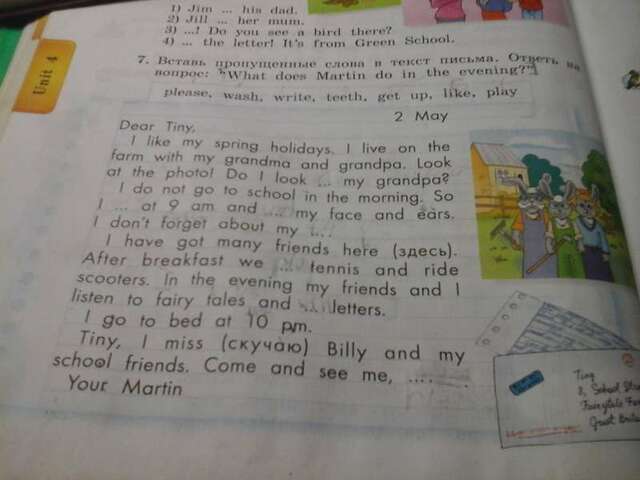 1) Jim ... his dad.
2) Jill ... her mum.
3) ...! Do you see a bird there?
4) ... the letter! It's from Green School.
Unit 4
7. Вставь пропущенные слова в текст письма. Ответь на
вопрос: "What does Martin do in the evening?"
please, wash, write, teeth, get up, like, play
2 May
Dear Tiny,
I like my spring holidays. I live on the
farm with my grandma and grandpa. Look
at the photo! Do I look ... my grandpa?
I do not go to school in the morning. So
I ... at 9 am and ... my face and ears.
I don't forget about my ... .
I have got many friends here (здесь).
After breakfast we ... tennis and ride
scooters. In the evening my friends and I
listen to fairy tales and ... letters.
I go to bed at 10 pm.
Tiny, I miss (скучаю) Billy and my
school friends. Come and see me, ... .
Your Martin
Tiny
8, School
Great